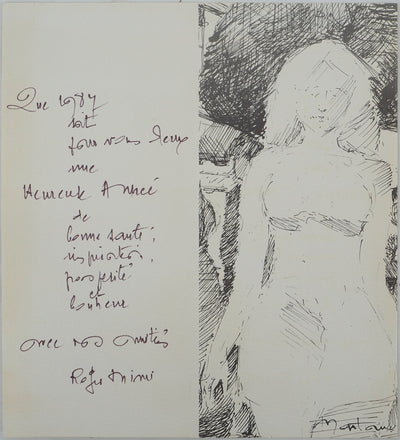 Que 1987
soit
pour vous deux
une
Heureuse Année
de
bonne santé,
inspiration,
prospérité
et
bonheur
avec nos amitiés
Roger